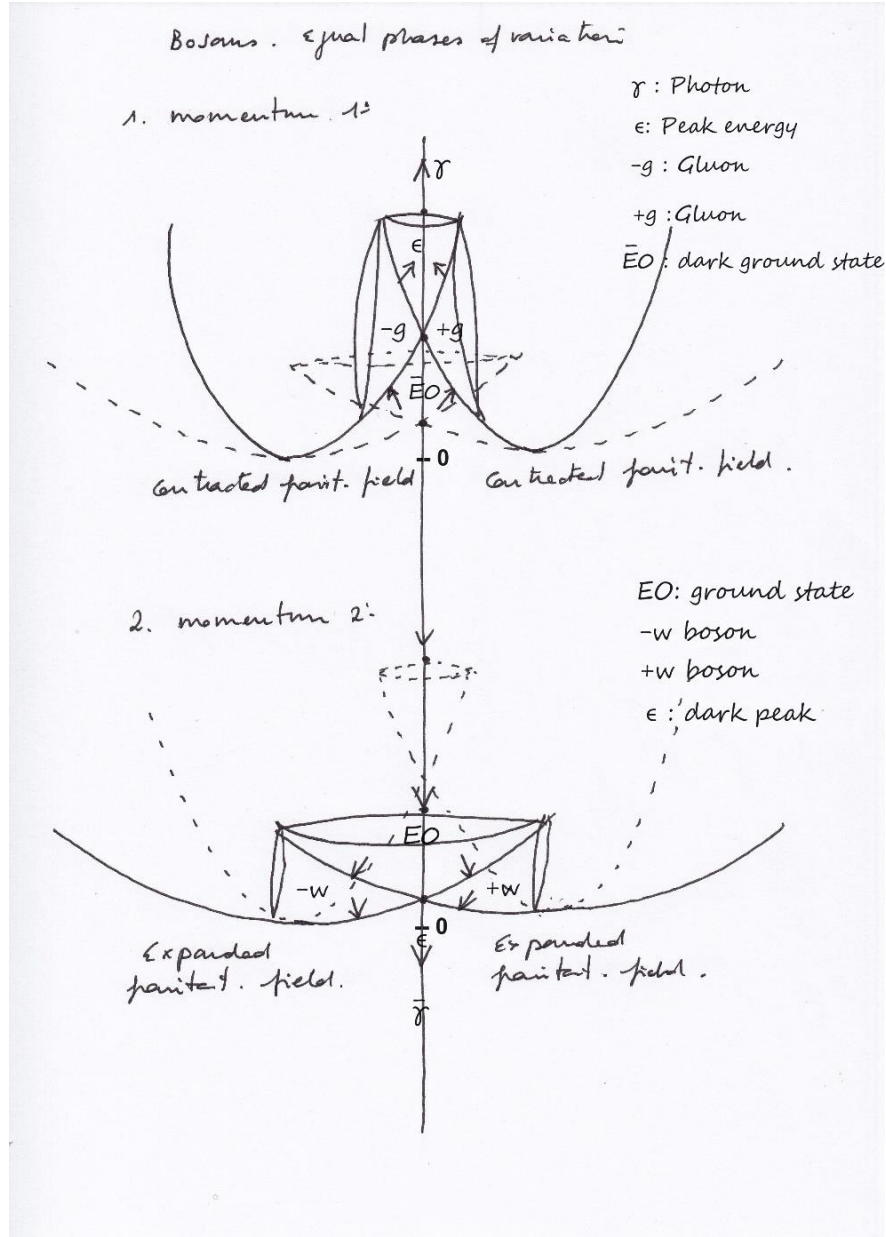 Bosons. Equal phases of variation
1. momentum 1:
γ : Photon
ϵ: Peak energy
-g : Gluon
+g : Gluon
E̅O : dark ground state
γ
ϵ
-g +g
E̅O
0
Contracted field
Contracted field.
2. momentum 2:
EO: ground state
-w boson
+w boson
ϵ : dark peak
EO
-w +w
0
ϵ
Expanded
field.
Expanded
field.
γ̅